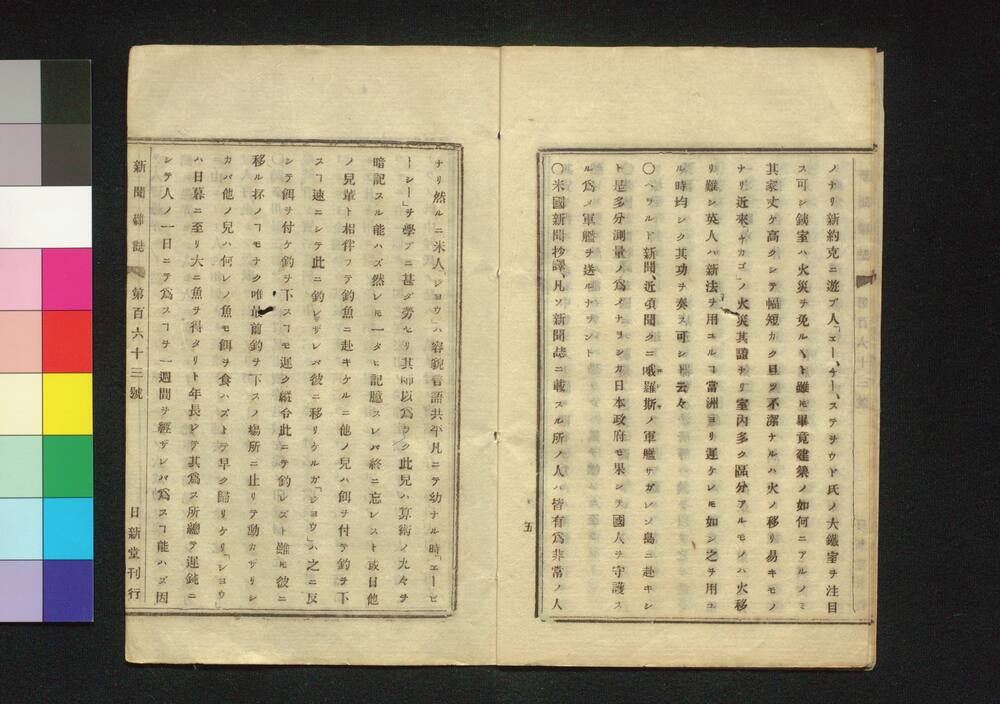 ノナリ新約克ニ遊ブ人「エー、チー、ステヲウド氏ノ大鐵室ヲ注目
ス可シ鐵室ハ火災ヲ免ル丶ト雖𪜈畢竟建築ノ如何ニアルノミ
其家丈ケ高クシテ幅短カク且ツ不潔ナルハ火ノ移リ易キモノ
ナリ近來「チカゴ」ノ火災其證ナリ室内多ク區分アルモノハ火移
リ難シ英人ハ新法ヲ用ユルヿ當洲ヨリ遲ケレ𪜈如シ之ヲ用ユ
ル時均シク其功ヲ奏ス可シト云々
〇ヘラルド新聞、近頃聞クニ哦羅斯ノ軍艦サガレン島ニ赴キシ
ト是多分測量ノ爲メナヲンカ日本政府モ果シテ國人ヲ守護ス
ル爲メ軍艦ヲ送ルナヲント
〇米國新聞抄譯、凡ソ新聞誌ニ載スル所ノ人ハ皆有爲非常ノ人
五
ナリ然ルニ米人「ジヨウ」ハ容貌言語共平凡ニテ幼ナル時「エービ
ートシー」ヲ學ブニ甚ダ勞セリ其師以爲ラク此兒ハ算術ノ九々ヲ
暗記スル能ハズ然レ𪜈一タヒ記臆スレバ終ニ忘レスト或日他
ノ兒輩ト相伴フテ釣魚ニ赴キケルニ他ノ兒ハ餌ヲ付テ釣ヲ下
スヿ速ニシテ此ニ釣レザレバ彼ニ移リケルガ「ジヨウ」ハ之ニ反
シテ餌ヲ付ケ釣ヲ下スヿモ遲ク縱令此ニテ釣レズト雖𪜈彼ニ
移ル抔ノヿモナク唯最前釣ヲ下スノ場所ニ止リテ動カザリシ
カバ他ノ兒ハ何レノ魚モ餌ヲ食ハズトテ早ク歸リケリ「ジヨウ
ハ日暮ニ至リ大ニ魚ヲ得タリト年長ジテ其爲ス所總テ遲鈍ニ
シテ人ノ一日ニテ爲スヿヲ一週間ヲ經ザレバ爲スヿ能ハズ因
新聞雜誌 第百六十三號 日新堂刊行